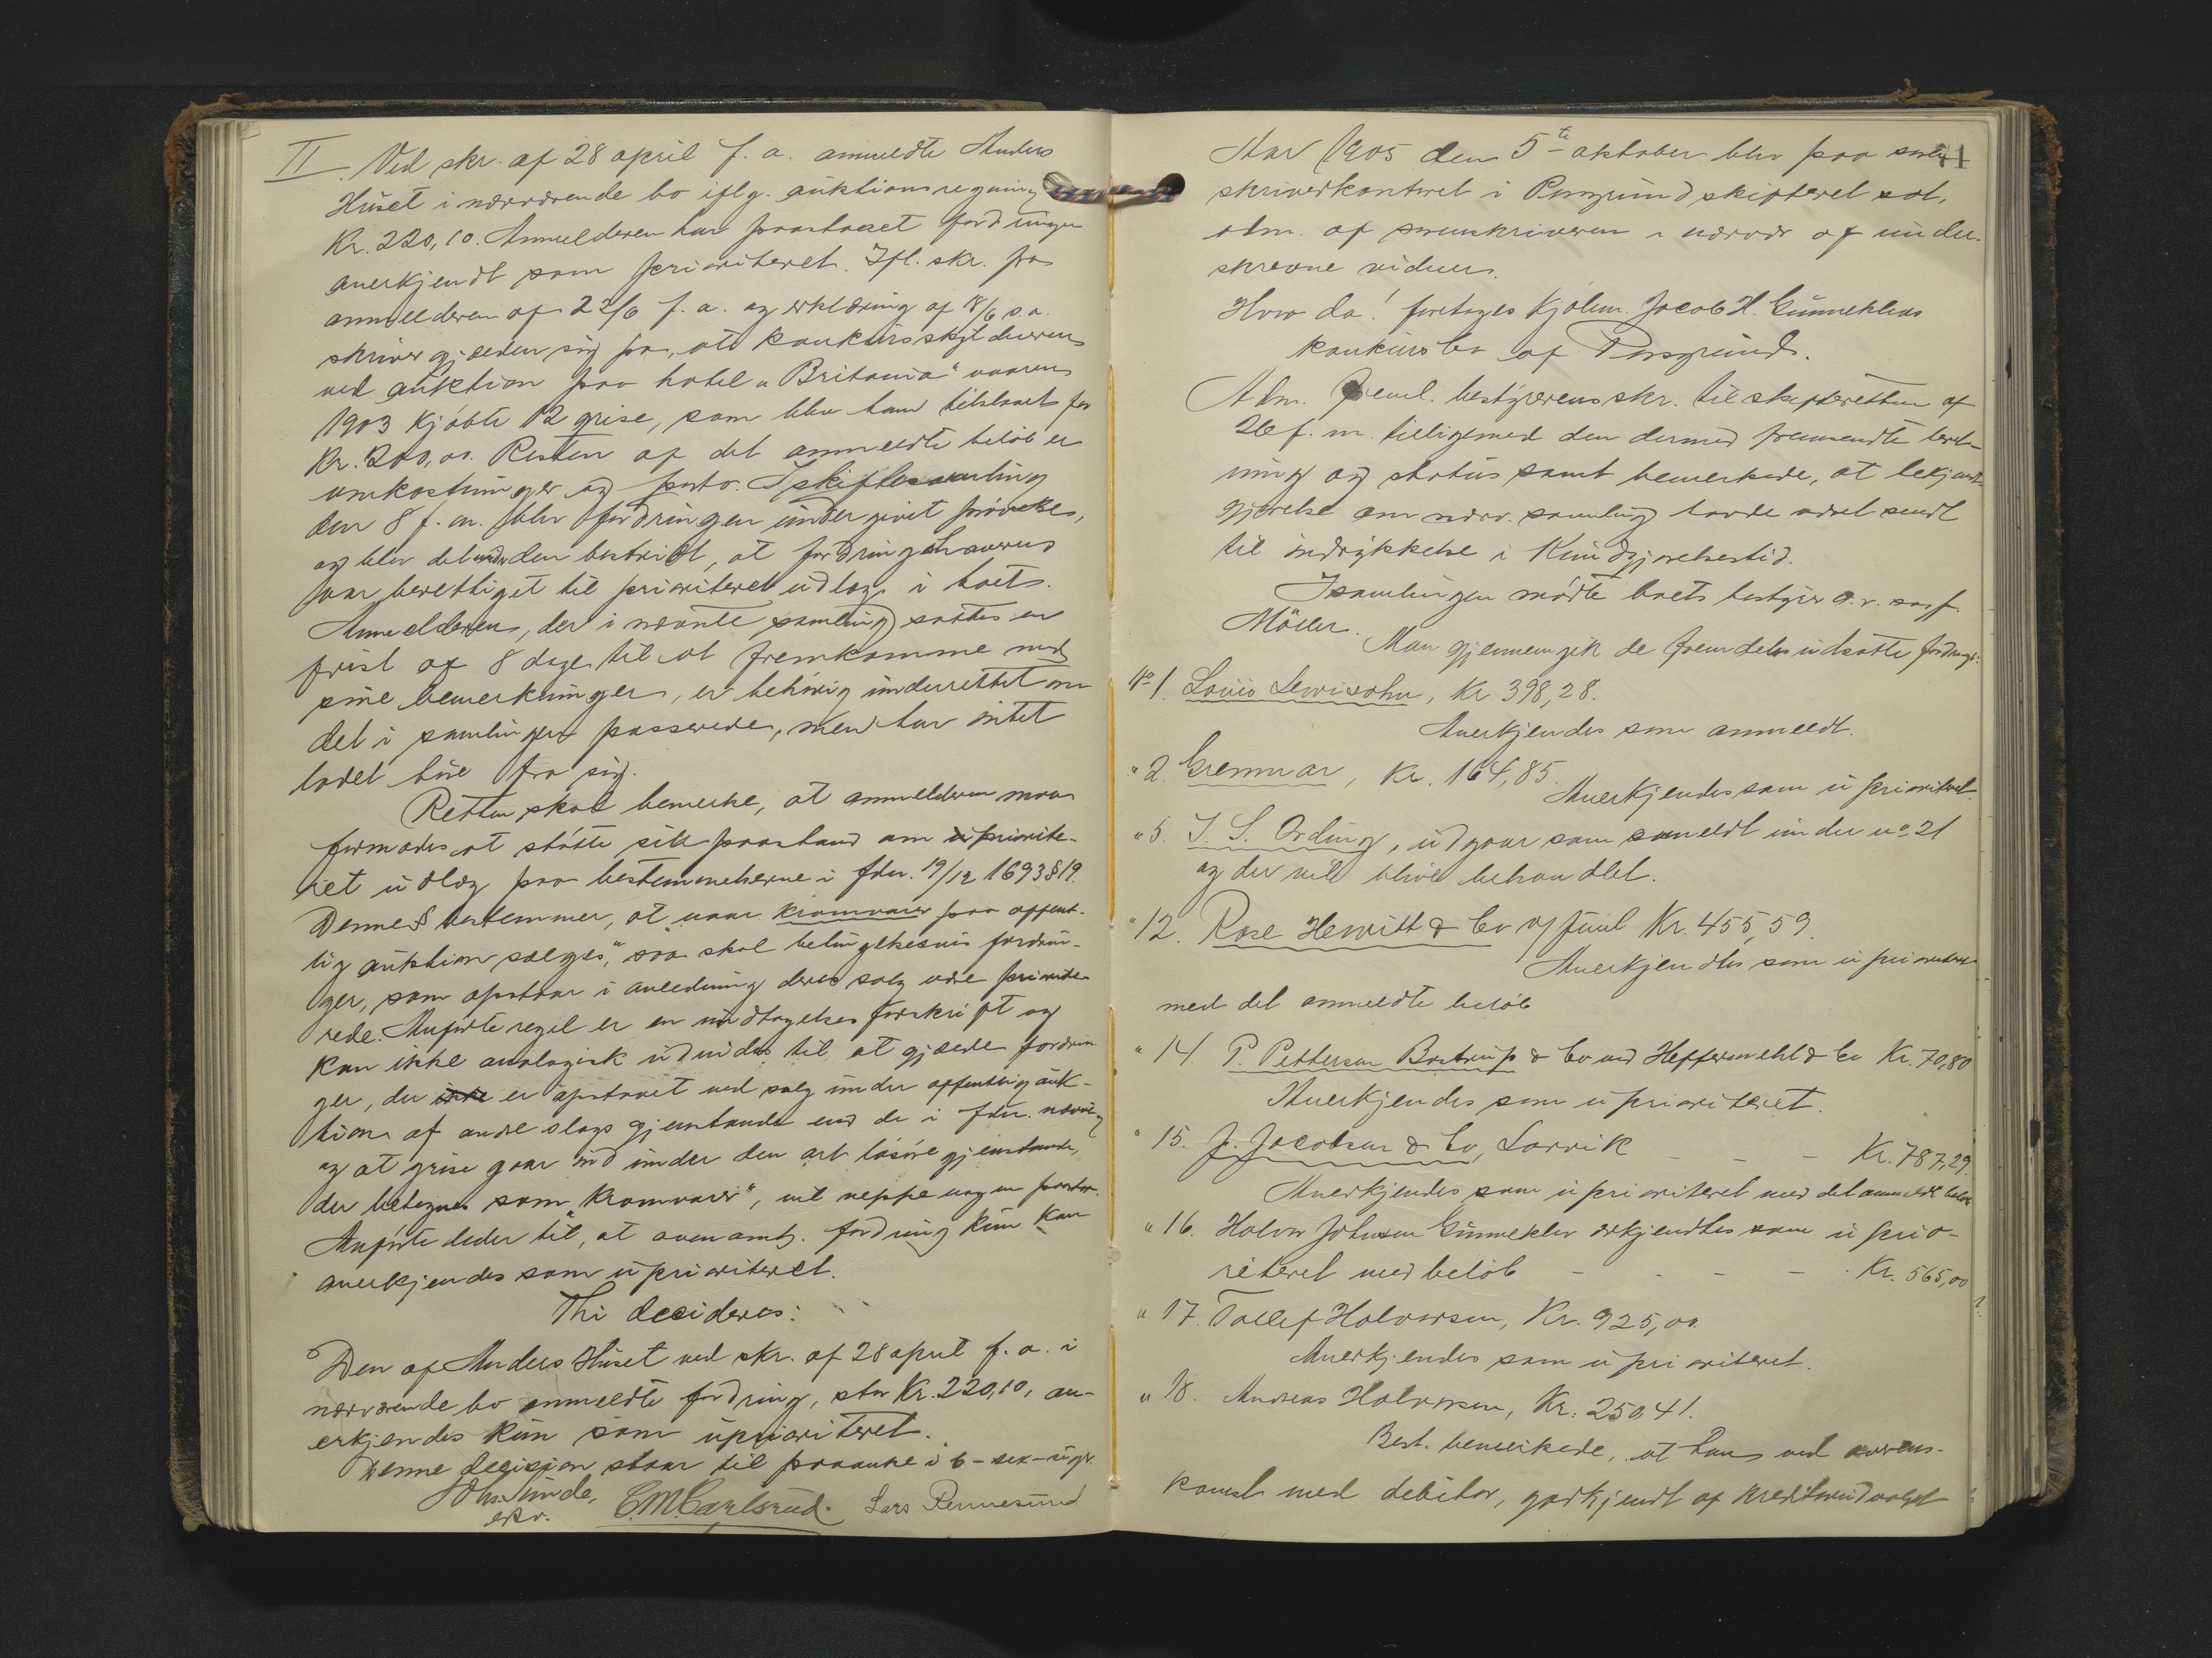 II. Ved skr. af 28 april f. a. anmeldte Anders
Huset i nærværende bo iflg. auktionsregning
Kr. 220,10. Anmelderen har paastaaet fordringen
anerkjendt som prioriteret. Ifl. skr. fra
anmelderen af 22/6 f. a. og erklæring af 18/6 s. a.
skriver gjælden sig fra, at konkursskyldneren
ved auktion paa hotel „Britania“ vaaren
1903 kjøbte 12 grise, som blev ham tilslaaet for
Kr. 200,00. Resten af det anmeldte beløb er
omkostninger og porto. I skiftesamling
den 8 f. m. blev fordringen undergivet prøvelse,
og blev det under den bestridt, at fordringshaveren
var berettiget til prioriteret udlæg i boet.
Anmelderen, der i nævnte samling sattes en
frist af 8 dage til at fremkomme med
sine bemerkninger, er behørig underrettet om
det i samlingen passerede, men har intet
ladet høre fra sig.
Retten skal bemerke, at anmelderen maa
formodes at støtte sik paastand om priorite-
ret udlæg paa bestemmelserne i fdn. 19/12 1693 § 19.
Denne § bestemmer, at naar kramvarer paa offent-
lig auktion sælges“, saa skal betingelsesvis fordrin-
ger, som opstaar i anledning deres salg være priorite-
rede. Anførte regel er en undtagelsesforskrift og
kan ikke analogisk udvides til at gjælde fordrin-
ger, der er opstaaet ved salg under offentlig auk-
tion af andre slags gjenstande end de i fdn. nævnte
og at grise gaar ind under den art løsøregjenstande,
der betegnes som „Kramvarer“, vil neppe nogen paastaa.
Anførte leder til, at ovenomh. fordring kun kan
anerkjendes som uprioriteret.
Thi decideres:
Den af Anders Huset ved skr. af 28 april f. a. i
nærværende bo anmeldte fordring, stor Kr. 220,10, an-
erkjendes kun som uprioriteret.
Denne decision staar til paaanke i 6 – sex – uger.
C. M. Carlsrud. Lars Rennesund
Aar 1905 den 5te oktober blev paa soren-
skriverkontoret i Porsgrund skifteret sat,
adm. af sorenskriveren i nærvær af under-
skrevne vidner.
Hvor da! foretages kjøbm. Jacob H. Gunneklevs
konkursbo af Porsgrund.
Adm. freml. bestyrerens skr. til skifteretten af
26 f. m. tilligemed den dermed fremsendte beret-
ning og status samt bemerkede, at bekjendt-
gjørelse om nærv. samling havde været sendt
til indrykkelse i Kundgjørelsestid.
I samlingen mødte boets bestyrer o.r. sagf.
Möller.
Man gjennemgik de fremdeles udsatte fordringer:
No 1. Louis Lewisohn, Kr. 398,28.
Anerkjendes som anmeldt.
„ 2. Grennar, Kr. 164,85.
Anerkjendes som uprioriteret.
„ 5. I. S. Ording, udgaar som anmeldt under no 21
og der vil blive behandlet.
„ 12. Rose Hewitt & Co v/ Juul Kr. 455,59.
Anerkjendtes som uprioriteret
med det anmeldte beløb
„ 14. P. Petterson Bastrup & Co ved Heffermehl & Co Kr. 70,80
Anerkjendes som uprioriteret.
„ 15. J. Jacobsen & Co, Larvik – – – Kr. 787,29.
Anerkjendes som uprioriteret med det anmeldte beløb
„ 16. Halvor Johnsen Gunneklev erkjendtes som uprio-
riteret med beløb – – – – Kr. 565,00
„ 17. Tollef Halvorsen, Kr. 925,00.
Anerkjendes som uprioriteret.
„ 18. Andreas Halvorsen, Kr. 250,41.
Best. bemerkede, at han ved overens-
komst med debitor, godkjendt af kreditorudvalget